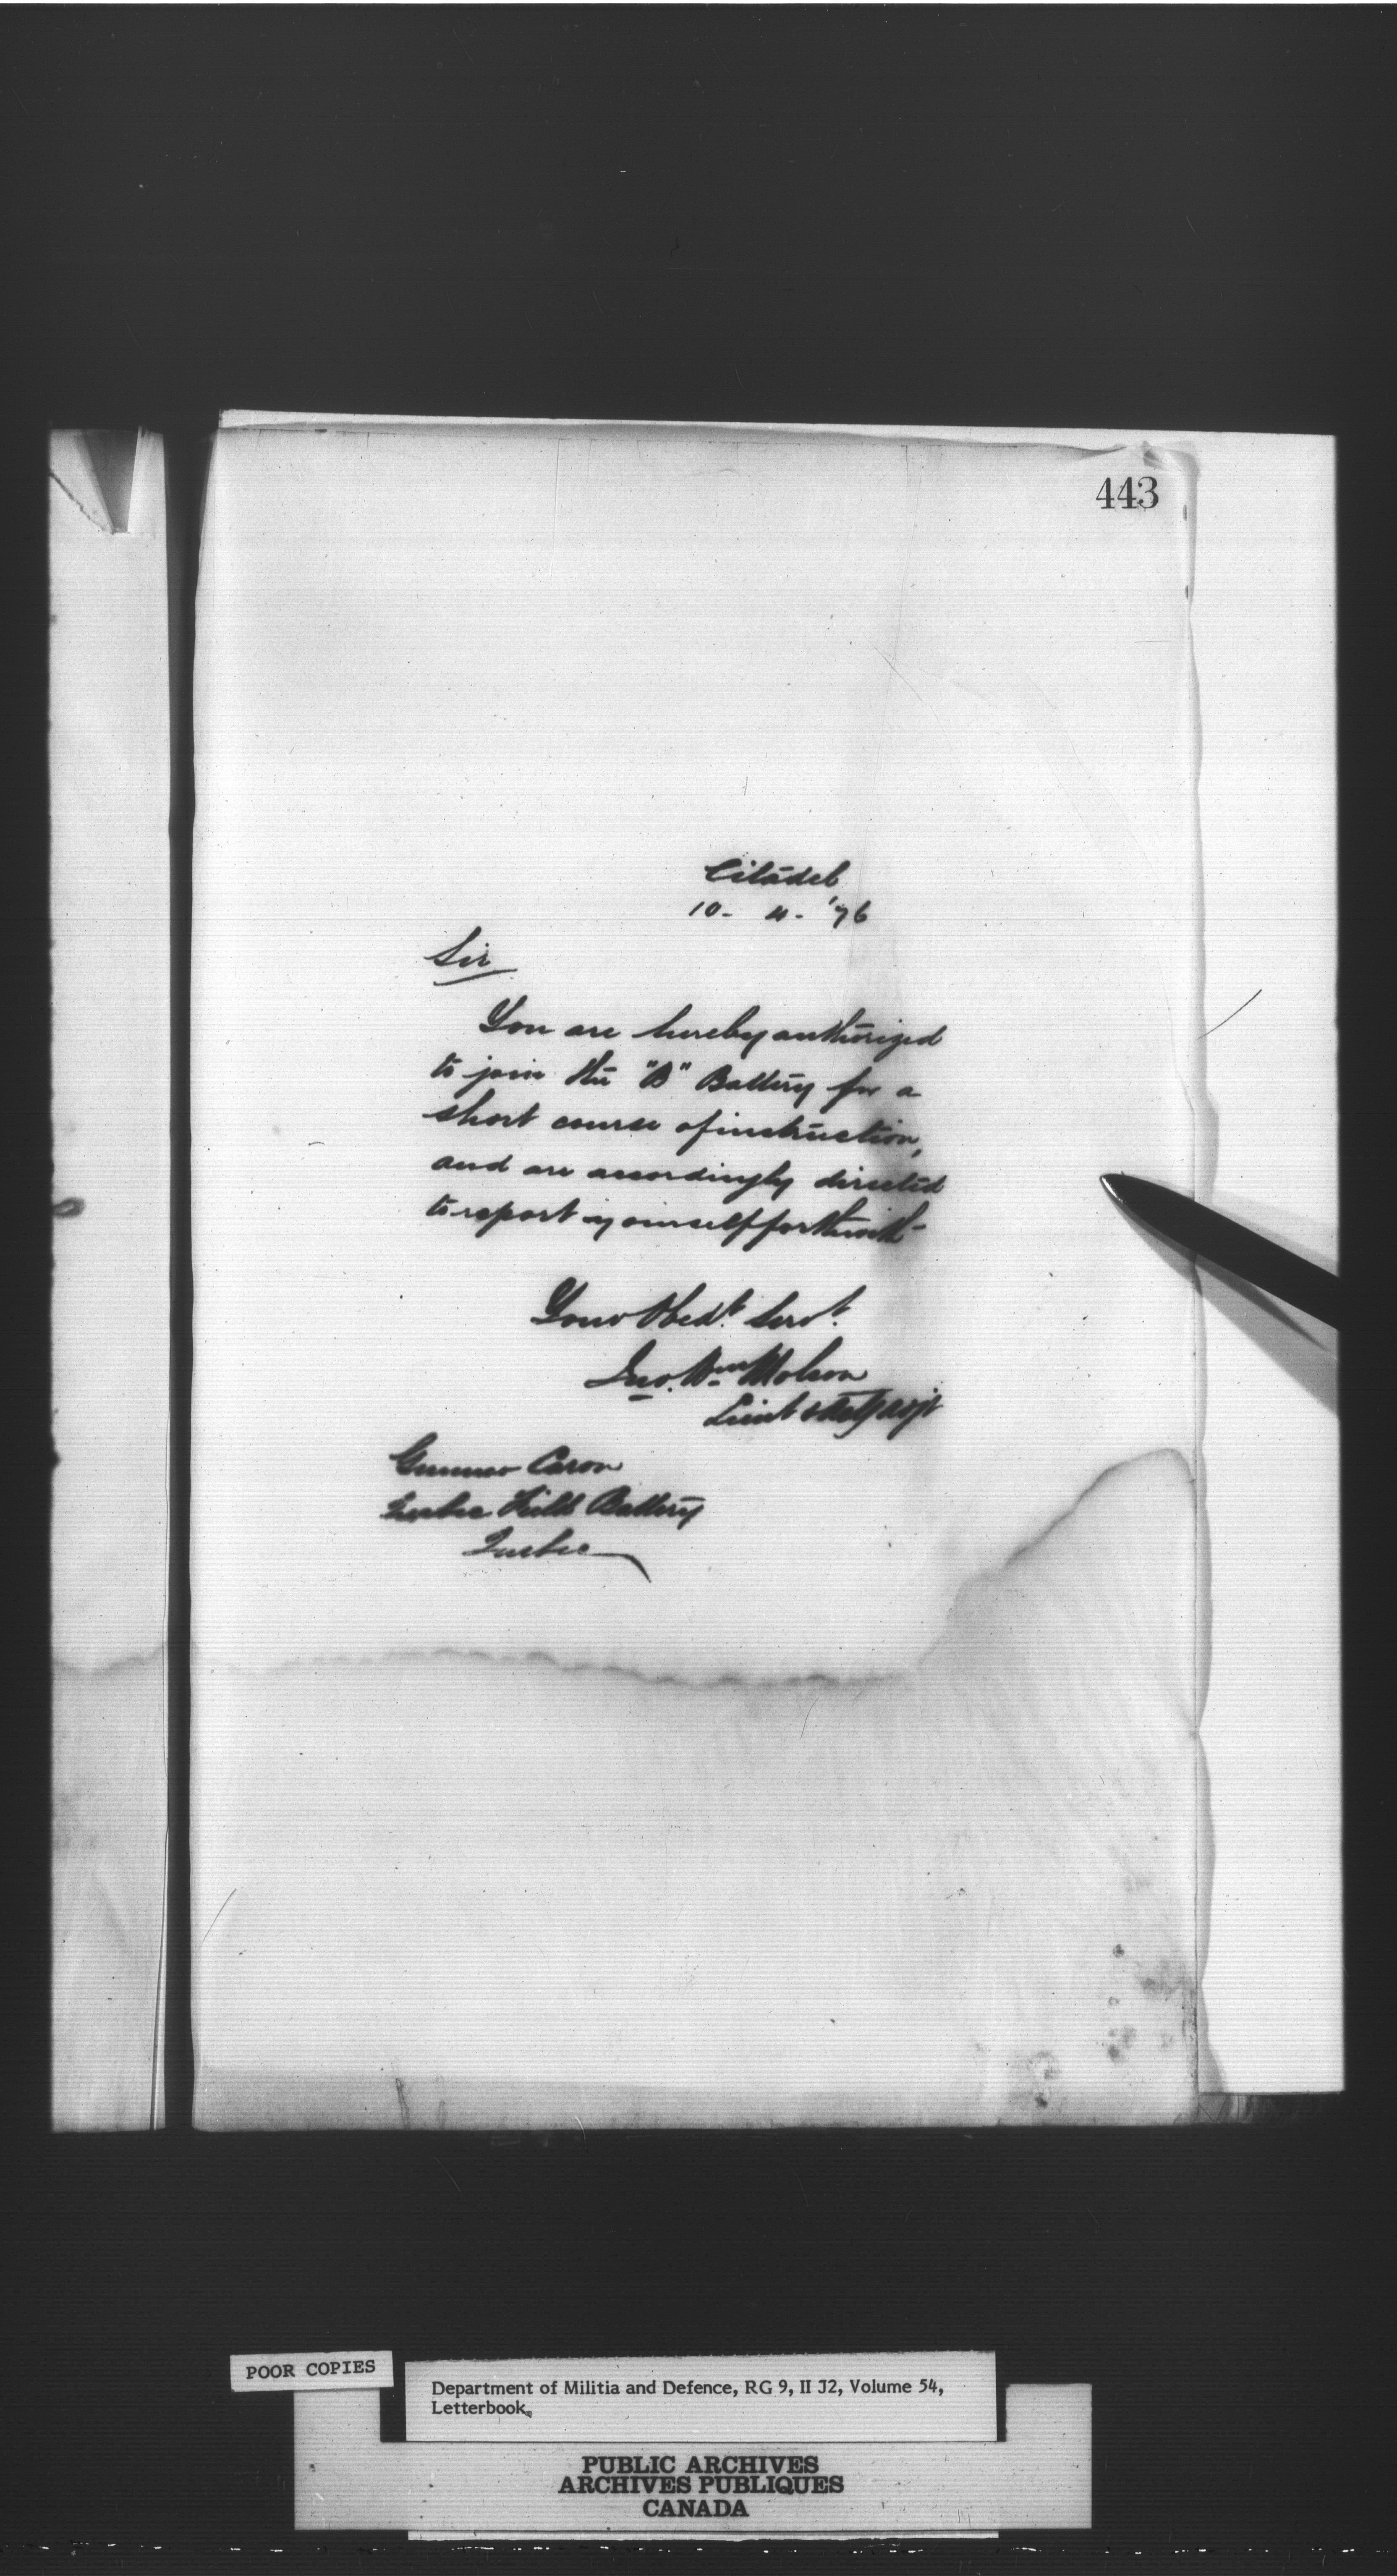 443
Citadel
10- 4- '76
Sir
You are hereby authorized
to join the "B" Battery for a
short course of instruction,
and are accordingly directed
to report yourself forthwith-
Your Obedt. Servt.
Jno. Wm Molson
Lieut & Actg Adjt
Gunner Caron
Quebec Field Battery
Quebec
POOR COPIES
Department of Militia and Defence, RG 9, II J2, Volume 54,
Letterbook.
PUBLIC ARCHIVES
ARCHIVES PUBLIQUES
CANADA